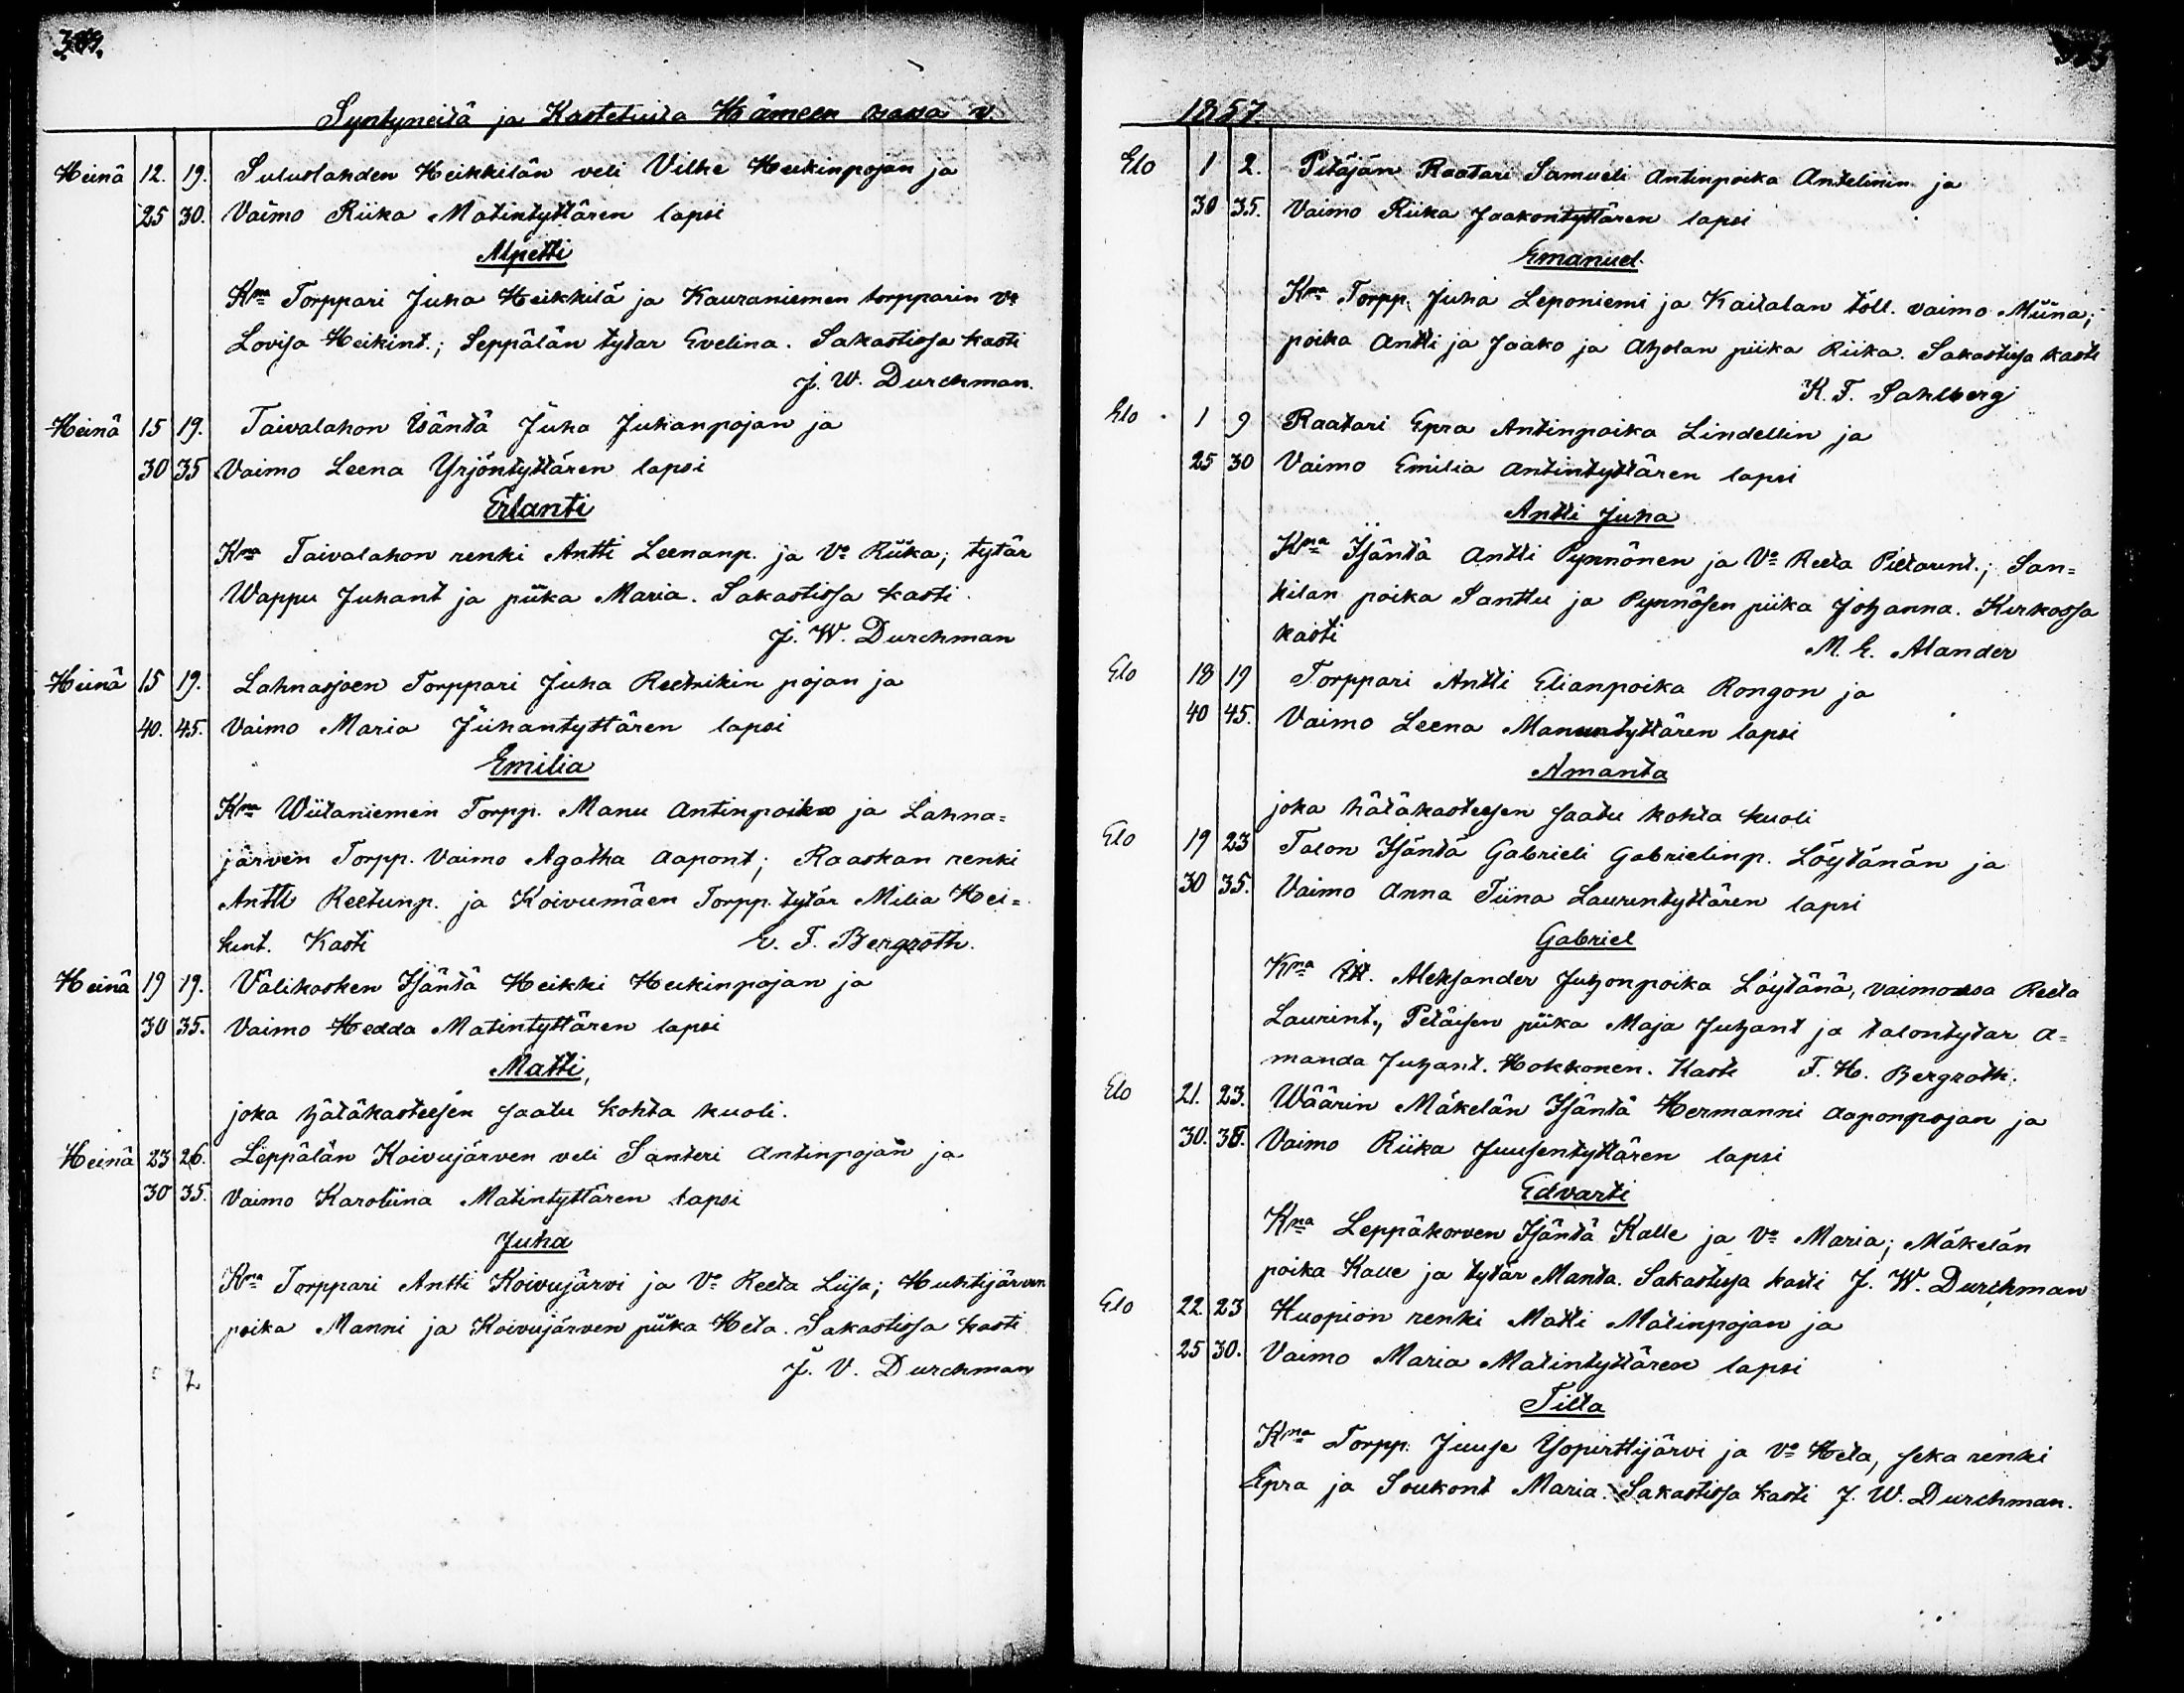 Syntyneitä ja Kastetuita Hämeen osasa v.
Heinä 12. 19. Suluslahden Heikkilän veli Vilhe Heikinpojan ja
25 30. Vaimo Riika Matintyttären lapsi
Alpetti
Kna Torppari Juha Heikkilä ja Kauraniemen torpparin Vo
Lovisa Heikint.; Seppälän tytar Evelina. Sakastissa kasti
J. W. Durchman.
Heinä 15 19. Taivalahon Isäntä Juha Juhanpojan ja
30 35 Vaimo Leena Yrjöntyttären lapsi
Erlanti
Kna Taivalahon renki Antti Leenanp. ja Vo Riika; tytär
Wappu Juhant ja piika Maria. Sakastissa kasti.
J. W. Durchman
Heinä 15 19. Lahnasjoen Torppari Juha Reetrikin pojan ja
40. 45. Vaimo Maria Juhantyttären lapsi
Emilia
Kna Wiitaniemen Torpp. Manu Antinpoika ja Lahna=
järven Torpp. Vaimo Agatha Aapont; Raaskan renki
Antti Reetunp. ja Koivumäen Torpp. tytär Milia Hei=
kint. Kasti E. F. Bergroth.
Heinä 19 19. Välikosken Isäntä Heikki Heikinpojan ja
30 35. Vaimo Hedda Matintyttären lapsi
Matti,
joka hätäkasteesen saatu kohta kuoli.
Heinä 23 26. Leppälän Koivujärven veli Santeri Antinpojan ja
30 35. Vaimo Karoliina Matintyttären lapsi
Juha
Kna Torppari Antti Koivujärvi ja Vo Reeta Liisa; Huhtijärven
poika Manni ja Koivujärven piika Heta. Sakastissa kasti
J. V. Durchman
1857.
Elo 1 2. Pitäjän Raatari Samueli Antinpoika Antelinin ja
30 35. Vaimo Riika Jaakontyttären lapsi
Emanuel.
Kna Torpp. Juha Leponiemi ja Kaitalan töll. vaimo Miina;
poika Antti ja Jaako ja Aholan piika Riika. Sakastissa kasti
K. F. Sahlberg
Elo 1 9 Raatari Epra Antinpoika Lindellin ja
25 30 Vaimo Emilia Antintyttären lapsi
Antti Juha
Kna Isäntä Antti Pynnönen ja Vo Reeta Pietarint.; San=
kilan poika Santtu ja Pynnösen piika Johanna. Kirkossa
kasti M. E. Alander
Elo 18 19 Torppari Antti Elianpoika Rongon ja
40 45. Vaimo Leena Manuntyttären lapsi
Amanta
joka hätäkasteesen saatu kohta kuoli
Elo 19 23 Talon Isäntä Gabrieli Gabrielinp. Löytänän ja
30 35. Vaimo Anna Tiina Laurintyttären lapsi
Gabriel
Kna Itl. Aleksander Juhonpoika Löytänä, vaimonsa Reeta
Laurint, Petäisen piika Maja Juhant ja talontytar A=
manda Juhant. Hokkonen. Kaste F. H. Bergroth.
Elo 21. 23. Wäärin Mäkelän Isäntä Hermanni Aaponpojan ja
30. 35. Vaimo Riika Juusentyttären lapsi
Edvarti
Kna Leppäkorven Isäntä Kalle ja Vo Maria; Mäkelän
poika Kalle ja tytär Manta. Sakastissa kasti J. W. Durchman
Elo 22. 23 Huopion renki Matti Matinpojan ja
25 30. Vaimo Maria Matintyttären lapsi
Tilta
Kna Torpp. Juuse Yopirttijärvi ja Vo Heta, seka renki
Epra ja Soukont Maria. Sakastissa kasti J. W. Durchman.